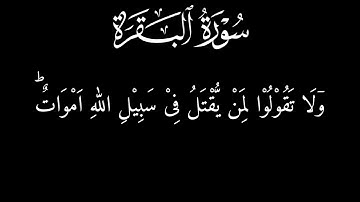 سُوْرَةُ ٱلْبَقَرَةِ
وَلَا تَقُوْلُوْا لِمَنْ يُّقْتَلُ فِىْ سَبِيْلِ اللّٰهِ اَمْوَاتٌ ؕ